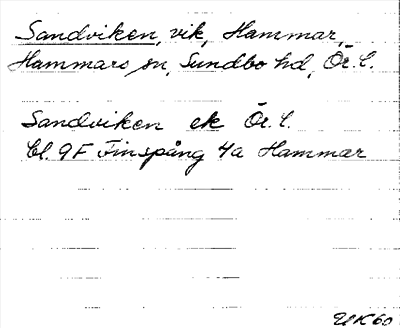 Sandviken, vik, Hammar,
Hammars sn, Sundbo hd, Ör. l.
Sandviken ek Ör. l.
bl. 9F Finspång 4a Hammar
UK60